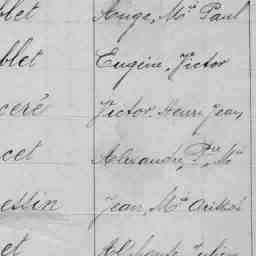 let Ange, Mie Paul
blet Eugène, Victor
ceré Victor Henri Jean
cet Alexandre, Pre, Mie
essin Jean, Mie
et Alphonse Julien